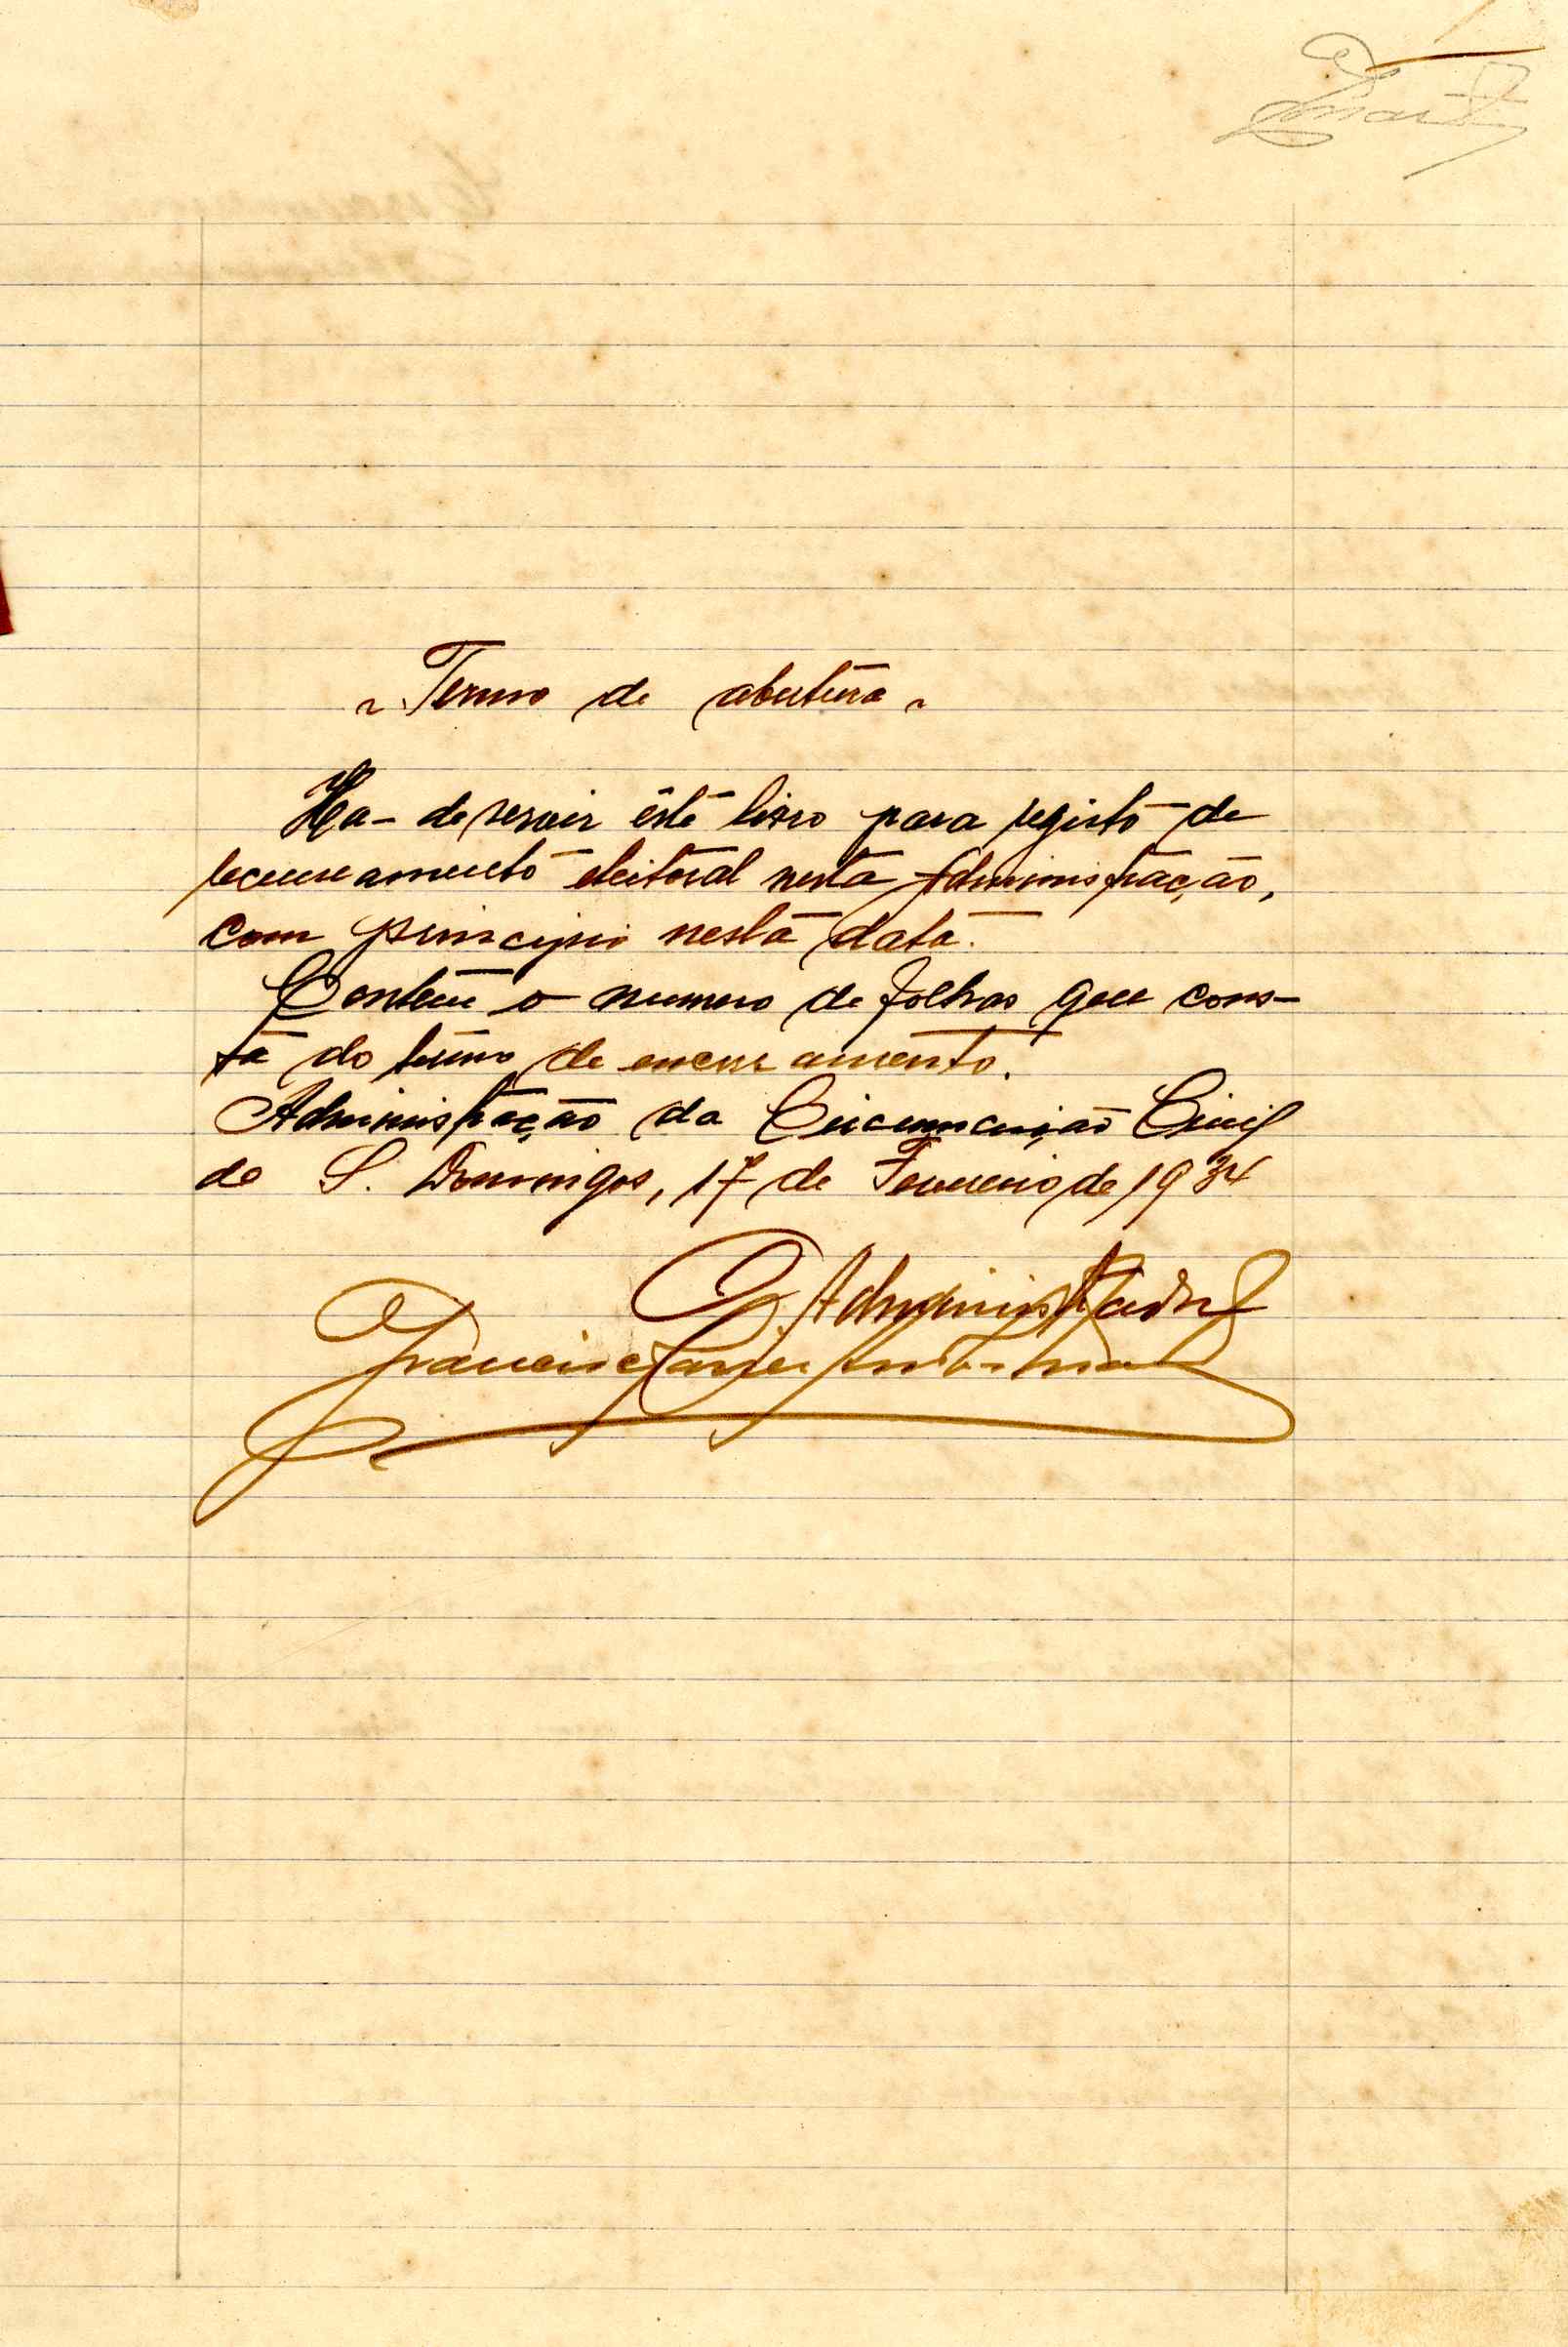 Termo de abertura
Ha-de servir êste livro para registo de
recenseamento eleitoral nesta Administração,
com principio nesta data.
Contem o numero de folhas que cons-
ta do termo de encerramento.
Administração da Circunscrição Civil
de S. Domingos, 17 de Fevereiro de 1934
O Administrador
Francisco Xavier